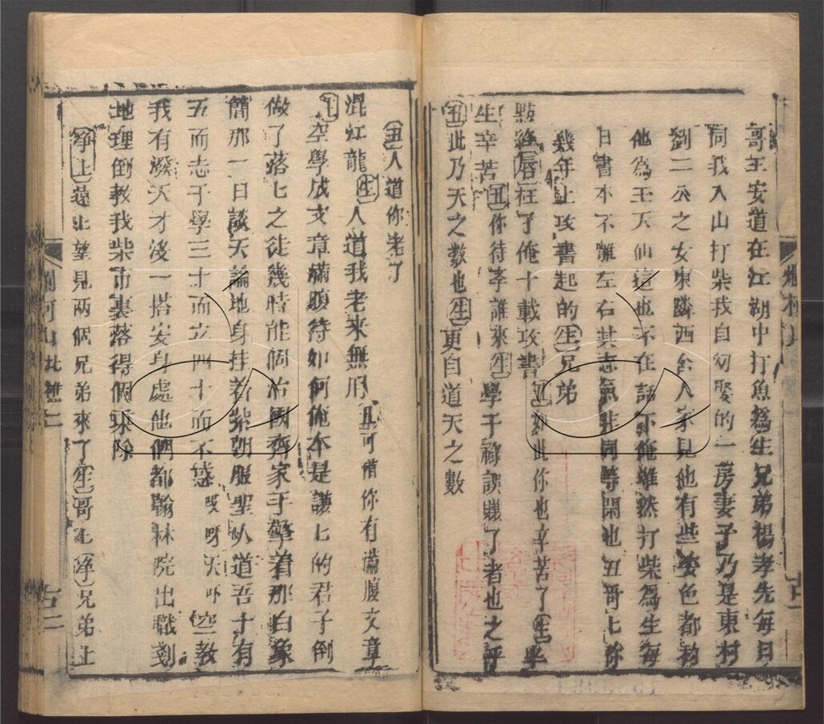 哥王安道在江湖中打魚為生兄弟楊孝先每日
同我入山打柴我自幼娶的一房妻子乃是東村
劉二公之女東隣西舍人家見他有些姿色都称
他為玉天仙這也不在話下俺雖然打柴為生每
日書本不離左右其志氣非同等閑也丑哥七你
幾年上攻書起的生兄弟
點絳唇枉了俺十載攻書丑如此你也辛苦了生半
生辛苦丑你待李誰來生學干祿誤賺了者也之乎
丑此乃天之数也生更自道天之數
丑人道你老了
混紅龍生人道我老來無用丑可惜你有滿腹文章
生空學成文章滿腹待如何俺本是謙七的君子倒
做了落七之徒幾時能個治國齊家手擎着那白象
簡那一日談天論地身挂着紫朝服聖人道吾十有
五而志于學三十而立四十而不惑哎呀天吓空教
我有潑天才没一搭安身處他們都翰林院出職刻
地理倒教我柴市裏落得個乘除
淨上遠七望見兩個兄弟來了生哥七淨兄弟上
爛柯山北樵二